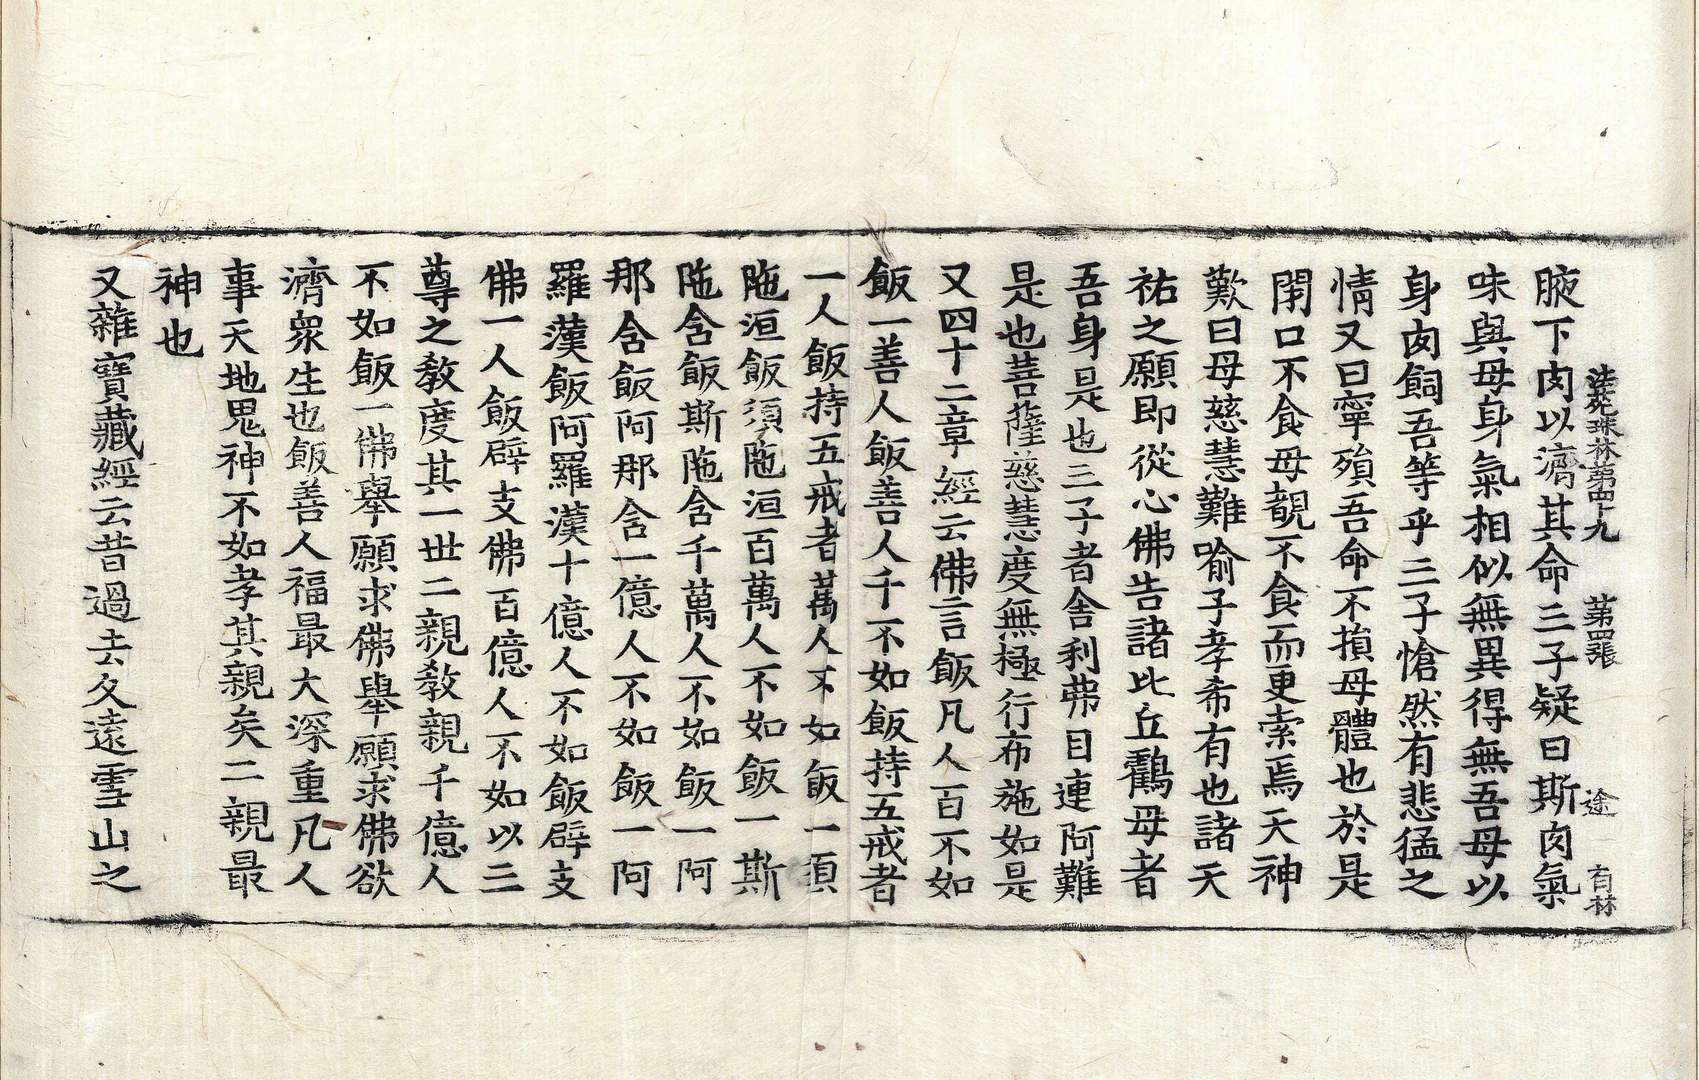 法苑珠林第四十九 第四張 途 有林
腋下肉以濟其命三子疑曰斯肉氣
味與母身氣相似無異得無吾母以
身肉飼吾等乎三子愴然有悲猛之
情又曰寧殞吾命不損母體也於是
閉口不食母覩不食而更索焉天神
歎曰母慈慧難喻子孝希有也諸天
祐之願即從心佛告諸比丘鸛母者
吾身是也三子者舍利弗目連阿難
是也菩薩慈慧度無極行布施如是
又四十二章經云佛言飯凡人百不如
飯一善人飯善人千不如飯持五戒者
一人飯持五戒者萬人不如飯一須
陁洹飯須陁洹百萬人不如飯一斯
陁含飯斯陁含千萬人不如飯一阿
那含飯阿那含一億人不如飯一阿
羅漢飯阿羅漢十億人不如飯辟支
佛一人飯辟支佛百億人不如以三
尊之教度其一世二親教親千億人
不如飯一佛舉願求佛舉願求佛欲
濟衆生也飯善人福最大深重凡人
事天地鬼神不如孝其親矣二親最
神也
又雜寶藏經云昔過去久遠雪山之